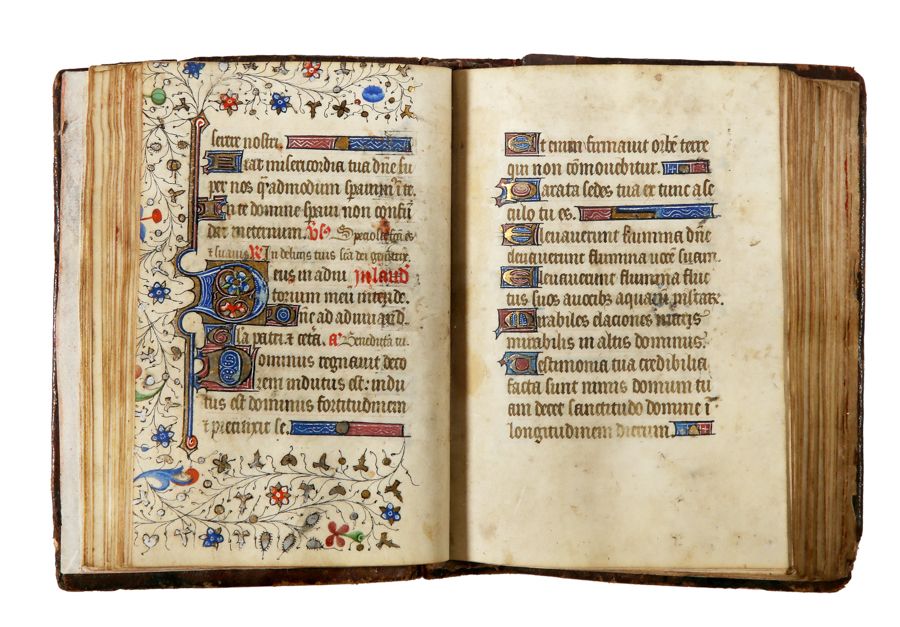 serere nostri.
iat misericordia tua dñe su
per nos q̃admodum speravim⁹ ĩ te.
n te domine speravi non confũ
dar in eternum. Vs. Speciosa facta es
⁊ suavis R. In deliciis tuis sc̃a dei genitrix
Deus in adiu In laud
torium meũ intende.
ne ad adiuvand.
la patri ⁊ cetẽ. a. Benedicta tu.
ominus regnavit deco
rem indutus est: indu
tus est dominus fortitudinem
⁊ precinxit se.
Et enim firmavit orbẽ terre
qui non cõmovebitur.
Parata sedes tua ex tunc a se
culo tu es.
Elevaverunt flumina dñe
elevaverunt flumina vocẽ suam.
Elevaverunt flumina fluc
tus suos a vocib⁹ aquarũ
Mirabiles elaciones maris
mirabilis in altis dominus.
Testimonia tua credibilia
facta sunt nimis domum tu
am decet sanctitudo domine ĩ
longitudinem dierum.